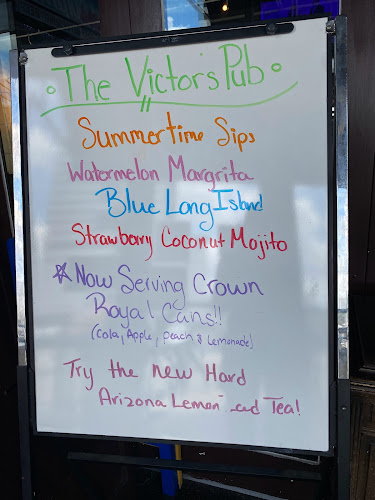 The Victor's Pub
Summertime Sips
Watermelon Margrita
Blue Long Island
Strawbarry Coconut Mojito
Now Serving Crown
Royal Cans!!
(Cola, Apple, Peach & Lemonade)
Try the new Hard
Arizona Lemon ed Tea!